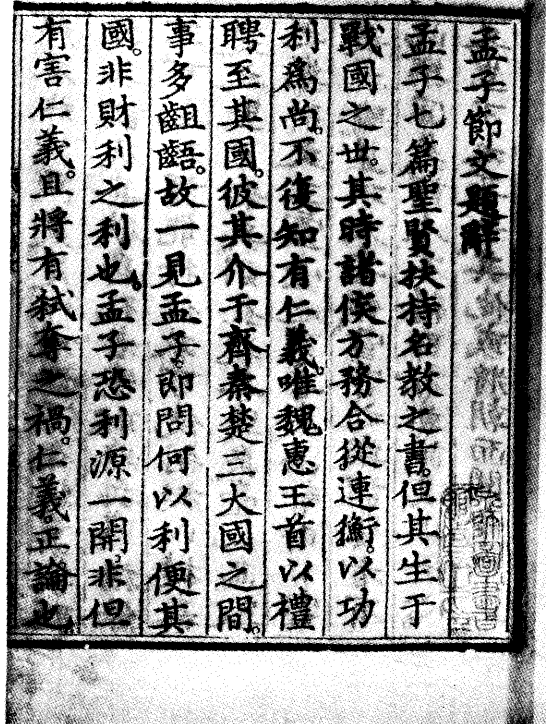 孟子節文題辭
孟子七篇聖賢扶持名教之書。但其生于
戰國之世。其時諸侯方務合從連衡。以功
利爲尚。不復知有仁義。唯魏惠王首以禮
聘至其國。彼其介于齊秦楚三大國之間。
事多齟齬。故一見孟子。即問何以利便其
國。非財利之利也。孟子恐利源一開。非但
有害仁義。且將有弑奪之禍。仁義正論也。